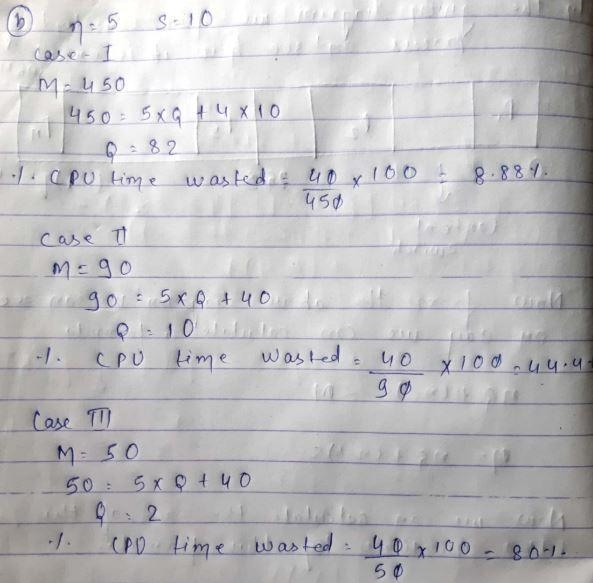 (b) n = 5 S = 10
Case - I
M = 450
450 = 5 x Q + 4 x 10
Q = 82
·/. CPU time wasted = 40/450 x 100 = 8.88%.
Case II
M = 90
90 = 5 x Q + 40
Q = 10
·/. CPU time wasted = 40/90 x 100 = 44.4
Case III
M = 50
50 = 5 x Q + 40
Q = 2
·/. CPU time wasted = 40/50 x 100 = 80·/.